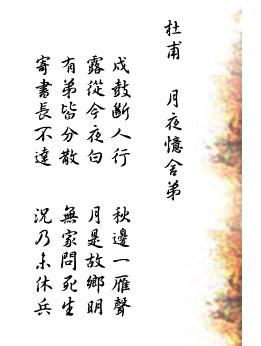 杜甫 月夜憶舍弟
戍鼓斷人行 秋邊一雁聲
露從今夜白 月是故鄉明
有弟皆分散 無家問死生
寄書長不達 況乃未休兵